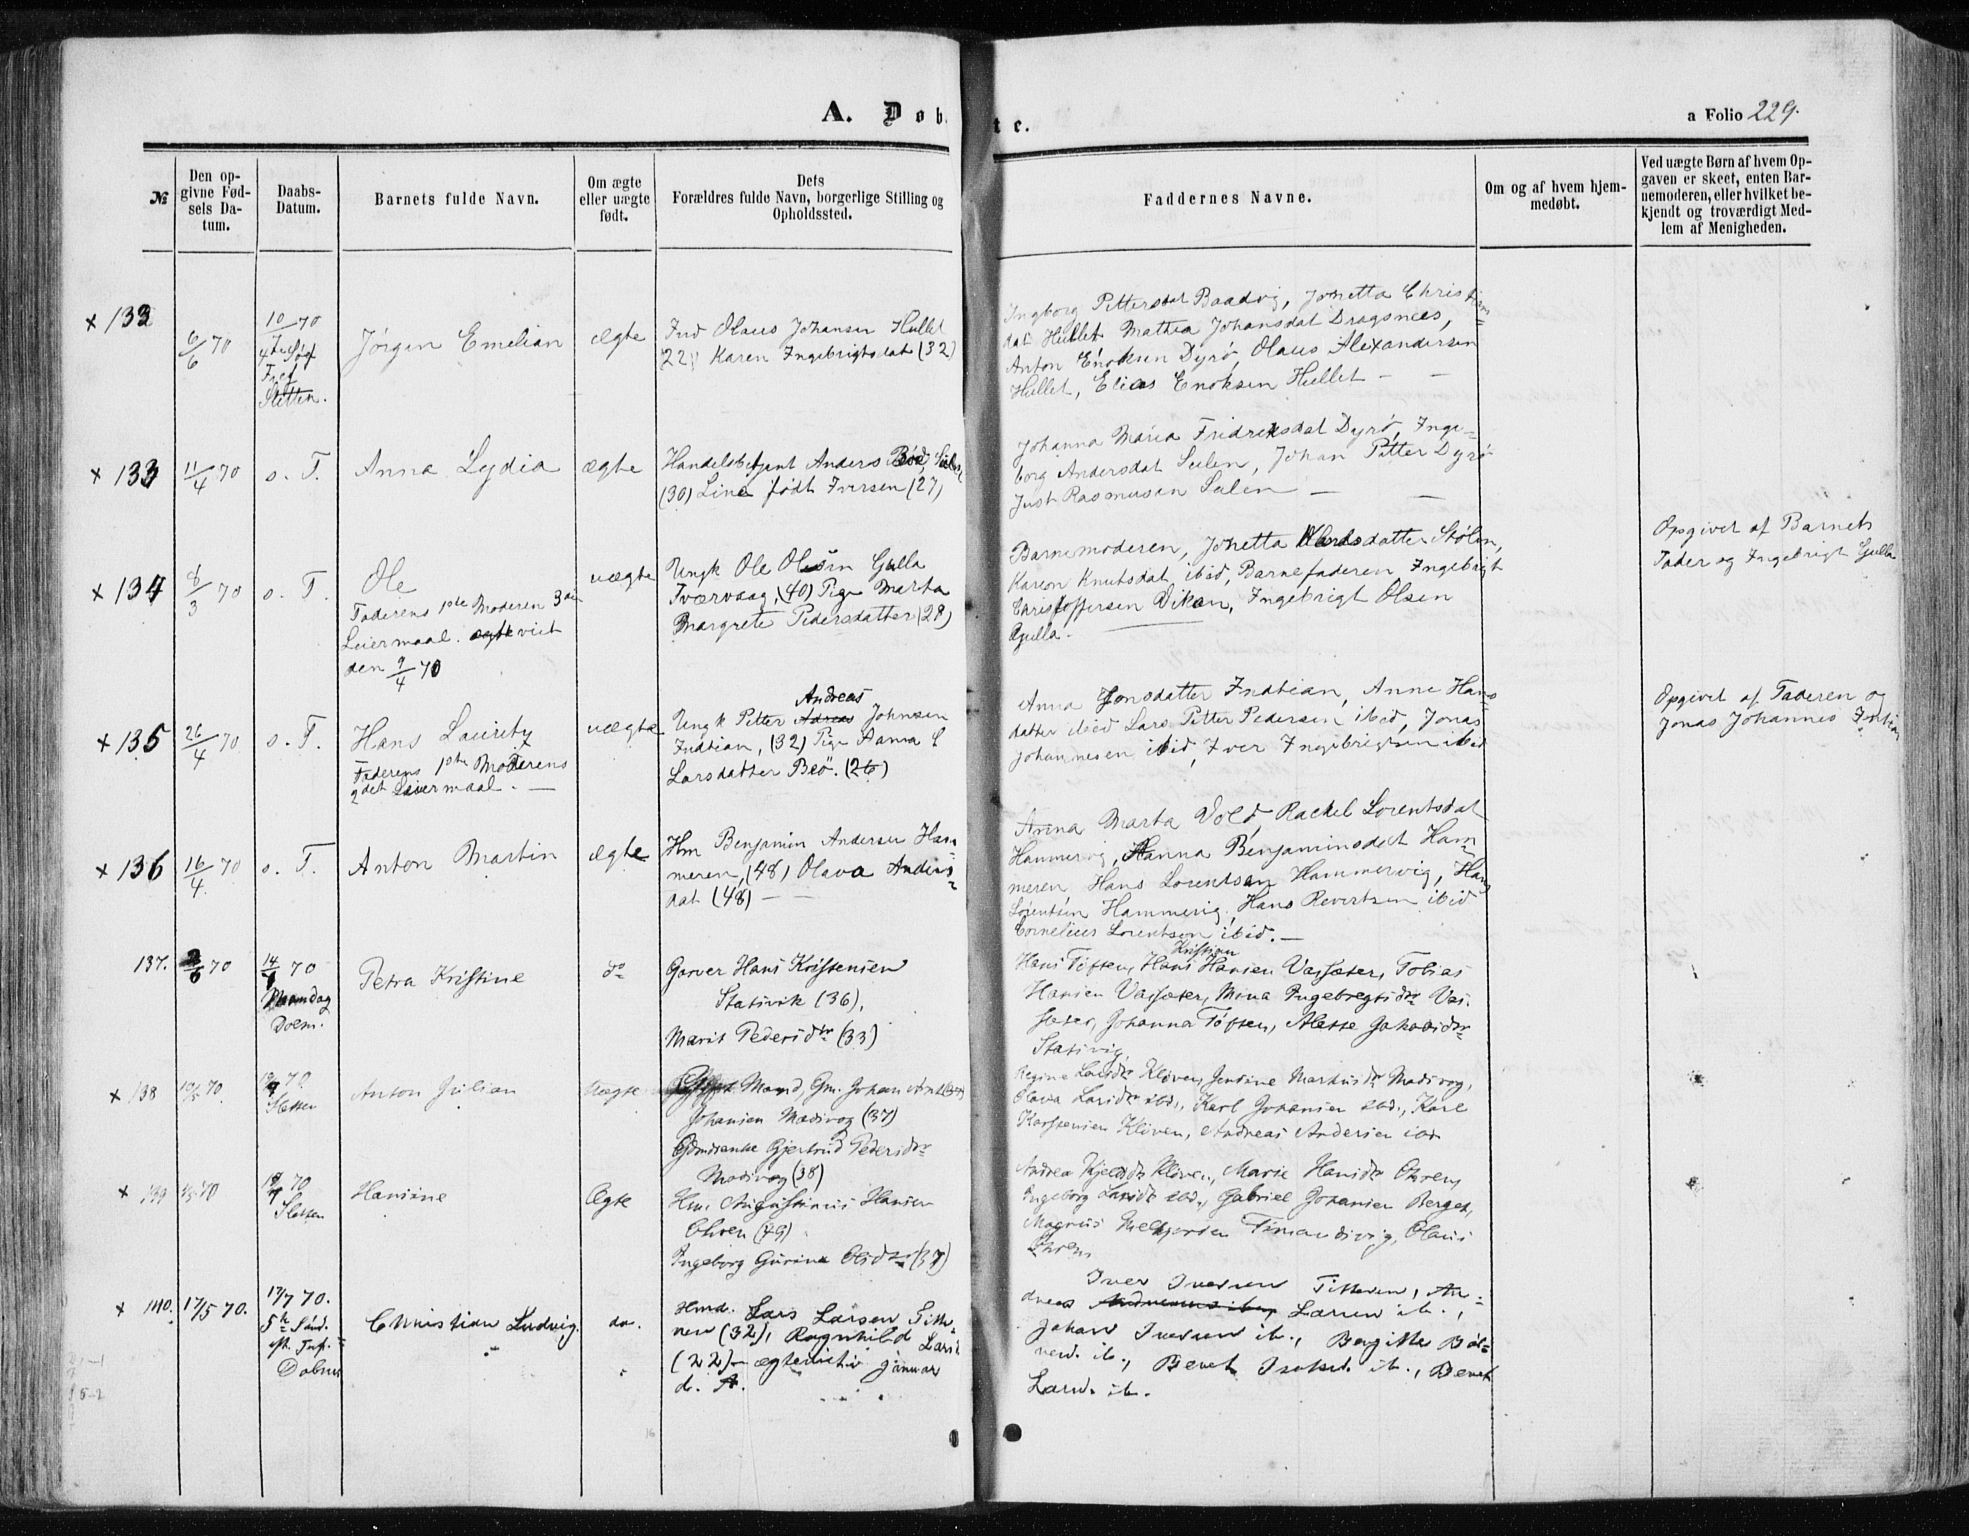 A. Døbte.
a Folio 229.
№
Den opgivne Fødsels Datum.
Daabs-Datum.
Barnets fulde Navn.
Om ægte eller uægte født.
Dets Forældres fulde Navn, borgerlige Stilling og Opholdssted.
Faddernes Navne.
Om og af hvem hjemmedøbt.
Ved uægte Børn af hvem Opgaven er skeet, enten Barnemoderen, eller hvilket bekjendt og troværdigt Medlem af Menigheden.
x 132
6/6 70
10/ 70
Sletten.
Jørgen Emelian
ægte
Olaus Johansen Hullet
22, Karen Ingebrigtsdat (32)
Ingborg Pittersdat Baadvig, Jonetta Chris
dat Hullet Mathea Johansdat Dragsnees,
Anton Enoksen Dyrø, Olaus Alexandersen
Hullet, Elias Enoksen Hullet — —
x 133
11/4 70
s. T.
Anna Lydia
ægte
Handelsbetjent Anders Bøe,
(30) Line født Iversen (27)
Johanna Maria Fridriksdat Dyrø, Inge-
borg Andersdat Sulen, Johan Pitter Dyrø
Just Rasmussen Sulen — —
x 134
8/3 70
s. T.
Ole
Faderens 1ste Moderen 3die
Leiermaal. viet
den 9/4 70
uægte
Ungk Ole Olsen Gulla
Tværvaag, (40) Pige Marta
Margrete Pedersdatter (28)
Barnemoderen, Jonetta datter Stølen,
Karen Knutsdat ibid, Barnefaderen, Ingebrigt
Christoffersen Viken, Ingebrigt Olsen
Gulla.
Opgivet af Barnets
Fader og Ingebrigt Gulla
x 135
26/4 70
s. T.
Hans Lauritz
Faderens 1ste Moderens
2det Leiermaal. —
uægte
Andreas
Ungk Pitter Adreas Johnsen
Indtian, (32) Pige Anna
Larsdatter Beø. (26)
Anna Jonsdatter Indtian, Anne Hans
datter ibid Lars Pitter Pedersen ibid, Jonas
Johannesen ibid, Iver Ingebrigtsen ibid
Opgivet af Faderen og
Jonas Johannes Indtian
x 136
16/4 70
s. T.
Anton Martin
ægte
Hm Benjamin Andersen Ham
meren, (48) Olava Anders-
dat (48) — —
Anna Marta Vold, Rachel Lorentsdat
Hammervig, Hanna Benjaminsdat Ham
meren Hans Lorentsen Hammervig, Hans
Lorentsen Hammervig, Hans Revertsen ibid
Cornelius Lorentsen ibid. —
137.
70
14/ 70
Dolm.
Petra Kristine
do
Garver Hans Kristensen
Stativik (36),
Marit Pedersdtr (33)
Kristian
Hans Tøften, Hans Hansen Vassæter, Tobias
Hansen Vassæter, Mona Ingebregtsdtr Vas-
sæter, Johanna Tøften, Alette Jakobsdtr
Stativig
x 138
10/5 70
70
Sletten
Anton Julian
Uægte
Mand, Gm. Johan
Johansen Madsvog (37)
Gjertrud Pedersdtr
Madsvog (38)
Regine Larsdtr Kløven, Jensine Markusdtr Madsvog,
Olava Larsdtr ibd., Karl Johansen ibd., Karl
Karstensen Kløven, Andreas Andersen ibd
x 139
70
70
Sletten
Hansine
Ægte
Hm. Augustinus Hansen
Ohren (49)
Ingeborg Gurina Olsdtr (37)
Andrea Kjeldsdtr Kløven, Marie Hansdtr Ohren,
Ingeborg Larsdtr ibd., Gabriel Johansen Berget,
Magnus Melkjorsen Simandsvig, Olaus
Ohren
x 140.
17/5 70.
17/7 70.
5te Sønd.
eft. Tref.
Dolm
Christian Ludvig.
do.
Hmd. Lars Larsen Titte-
nen (32), Ragnhild Larsd
(22) — ægteviet i januar
d. A.
Iver Iversen Titteren, An-
dreas Larsen ib.,
Johan Iversen ib., Bergitte
ib., Beret Isaksd. ib., Beret
Larsd. ib.